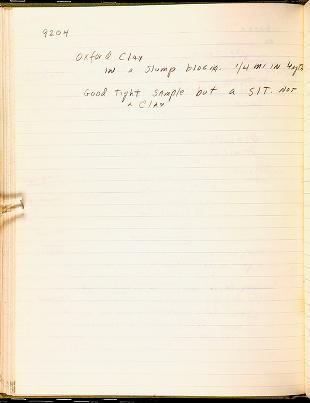 9204
Oxford Clay
IN a slump block. 1/4 mi IN
Good Tight sample but a SIT. NOT
a Clay